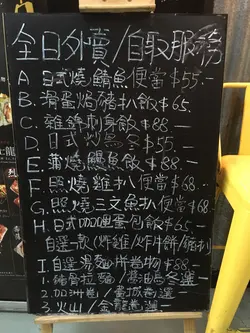 全日外賣/自取服務
A 日式燒鯖魚便當$55.—
B. 滑蛋焗豬扒飯$65.
C. 雜錦刺身飯$88.—
D 日式炒烏冬$55—
E. 蒲燒鰻魚飯$88—
F. 照燒雞扒便當$68.
G. 照燒三文魚扒當$68.
H. 日式咖喱蛋包飯$65
自選一款(炸雞/炸片餅/豬扒
I. 自選湯麵 拼當物$88—
1. 豬骨拉麵/醬油烏冬選
2. 加 選
3. 火山/金龍燕選